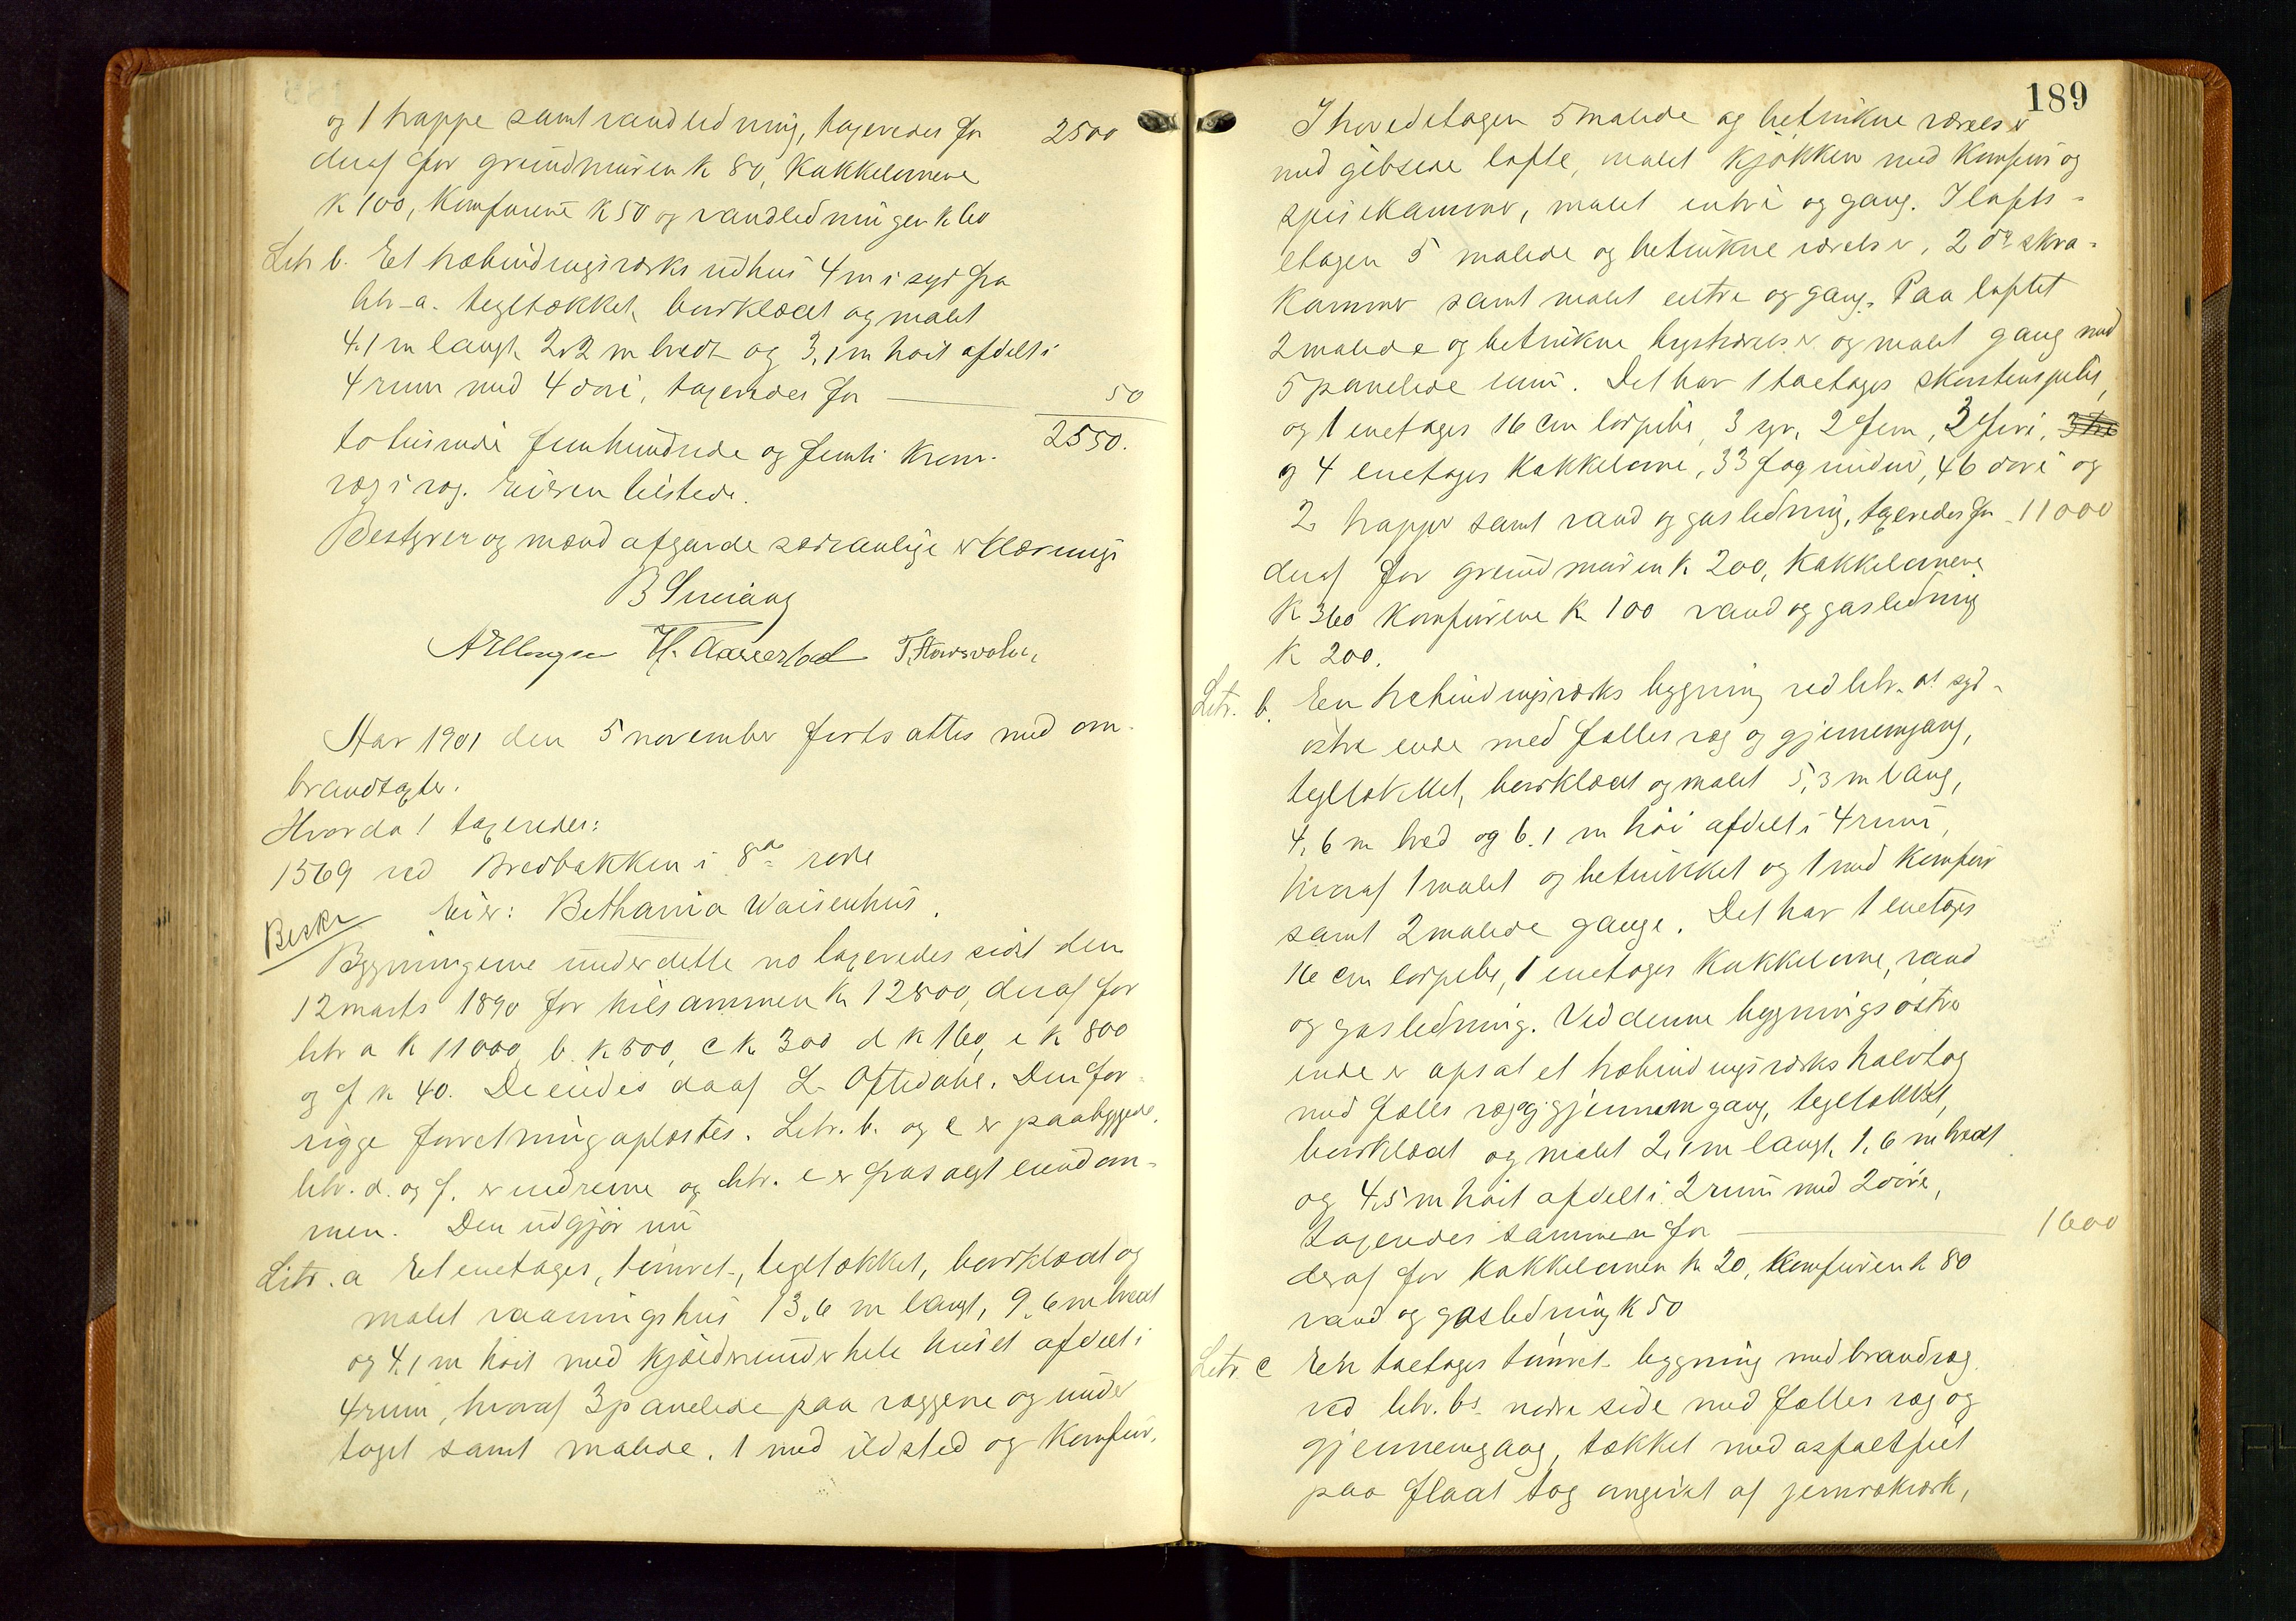 og 1 trappe samt vandledning, taxeredes for 2500
deraf for grundmuren k 80, Kakkelovnene
k 100, Komfurene k 50 og vandledningen k 60
Litr b. Et træbindingsværks udhus 4 m i syd fra
litr a. tegltækket, bordklædt og malet
4.1 m langt, 2.2 m bredt og 3,1 m høit afdelt i
4 rum med 4 døre, taxeredes for 50
totusinde femhundrede og femti kroner. 2550.
væg i væg. Eieren tilstede.
Bestyrer og mænd afgavde sædvanlige erklærings
Aar 1901 den 5 november fortsattes med om-
brandtaxter.
Hvorda! taxeredes:
1569 ved Bredbakken i 8de rode
Eier: Bethania Waisenhus.
Beskr
Bygningerne under dette no taxeredes sidst den
12 marts 1890 for tilsammen k 12800, deraf for
litr a k 11000, b. k 500, c k 300 d k 160, e k 800
og f k 40. De eiedes da af L. Oftedahl. Den for-
rigge forretning oplæstes. Litr. b. og c er paabyggede,
litr. d. og f. er nedrevne og litr. e er frasolgt eiendom-
men. Den udgjør nu
Litr. a Et enetages, tømret, tegltækket, bordklædt og
malet vaaningshus 13,6 m langt, 9,6 m bredt
og 4,1 m høit med kjælder under hele huset afdelt i
4 rum, hvoraf 3 panelede paa væggene og under
taget samt malede. 1 med ildsted og Komfur.
189
I hovedetagen 5 malede og betrukne værelser
med gibsede lofte, malet kjøkken med Komfur og
spisekammer, malet entré og gang. I lofts-
etagen 5 malede og betrukne værelser, 2 do skra-
kammer samt malet entre og gang. Paa loftet
2 malede og betrukne kvistværelser og malet gang med
5 panelede rum. Det har 1 toetages skorstenspibe,
og 1 enetages 16 cm lospibe, 3 syv, 2 fem, 3 fire,
og 4 enetages Kakkelovne, 33 fag vinduer, 46 døre og
2 trapper samt vand og gasledning, taxeredes for 11000
deraf for grundmuren k. 200, Kakkelovnene
k 360 Komfurene k 100 vand og gasledning
k 200.
Litr. b. Een træbindingsværks bygning ved litr. as syd-
østre ende med fælles væg og gjennemgang,
tegltækket, bordklædt og malet 5,3 m lang,
4,6 m bred og 6.1 m høi afdelt i 4 rum,
hvoraf 1 malet og betrukket og 1 med Komfur
samt 2 malede gange. Det har 1 enetages
16 cm lospibe, 1 enetages Kakkelovne, vand
og gasledning. Ved denne bygnings østre
ende er opsat et træbindingsværks halvtag
med fælles væg og gjennemgang, tegltækket,
bordklædt og malet 2,1 m langt, 1,6 m bredt
og 4,5 m høit afdelt i 2 rum med 2 døre,
taxeredes sammen for 1600
deraf for Kakkelovnen k 20, Komfuren k 80
vand og gasledning k 50
Litr. c Een toetages tømret bygning med brandvæg
ved litr. bs nordre side med fælles væg og
gjennemgang, tækket med asfaltfilt
paa fladt tag omgivet af jernrækværk,